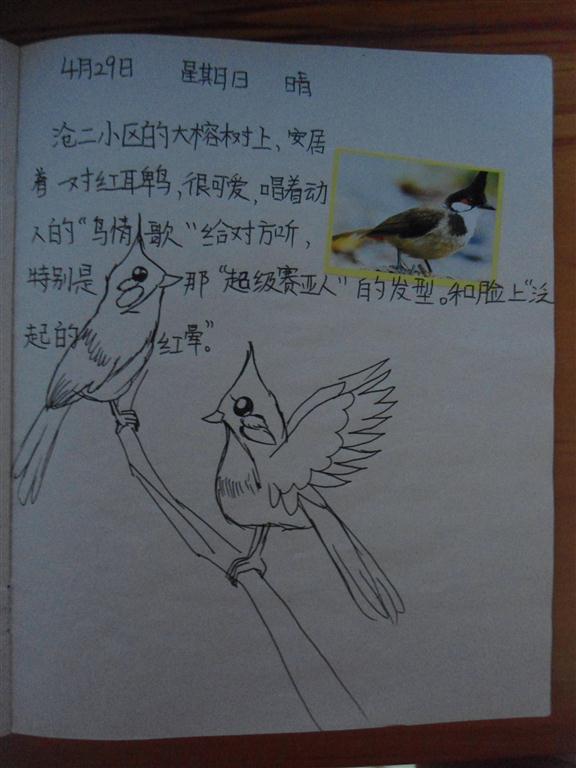 4月29日 星期日 晴
沧二小区的大榕树上、安居
着一对红耳鹎,很可爱,唱着动
人的“鸟情歌”给对方听,
特别是那“超级赛亚人”的发型。和脸上“泛
起的红晕。”